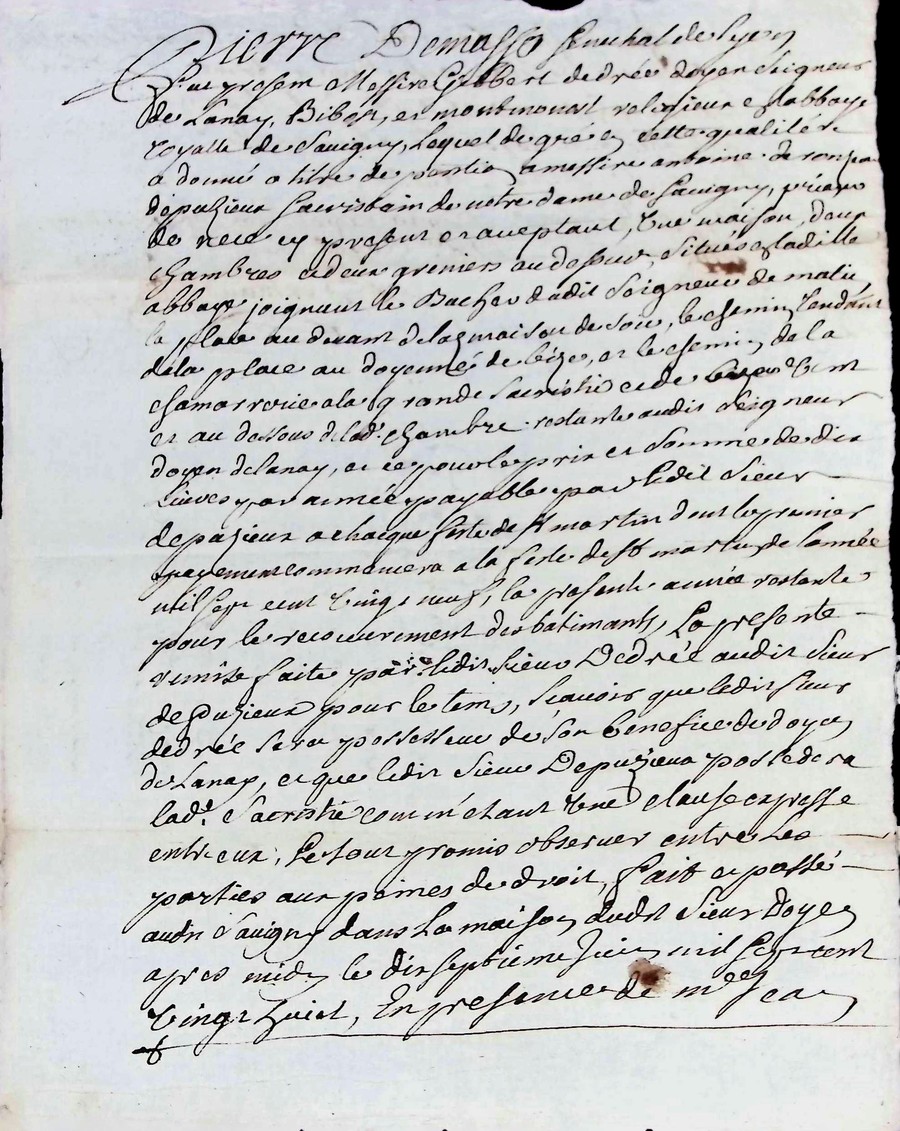 Pierre Demasso senechal de Lyon
Fut present Messire Gilbert de drée doyen Seigneur
de Lanay, Bibost, et montmenot religieux en labbaye
royalle de Savigny, Lequel de gré en cette qualité
a donné a titre de pention a messire antoine de
depuzieux Sacristain de notre dame de Savigny,
de present et aceptant, Une maison, deux
chambres et deux greniers au dessus, situés en ladille
abbaye joignant le Bucher dudit Seigneur de matin
la place au devant de la maison de soir, le chemin tendant
de la place au doyenné de bize, et le chemin de la
chamarrerie a la grande Sacristie et de vent
et au dessous de lad.e chambre restante audit Seigneur
doyen de lanay, et ce pour le prix et Somme de dix
Livres par année payable par ledit Sieur
depuzieux a chaque feste de st martin dont le premier
payement commencera a la feste de st martin de l'année
mil sept cent vingt neuf, la presente année restante
pour le recouvrement des batimants, La presente
remise faite par ledit Sieur Dedrée audit Sieur
depuzieux pour le tems, Scavoir que ledit Sieur
dedrée sera possesseur de son benefice de doyen
de Lanay, et que ledit Sieur Depuzieux possedera
lad.e Sacristie comm'etant Une clause expresse
entreux, Le tout promis observer entre Les
parties aux peines de droit, fait et passé
audit Savigny dans La maison dudit Sieur Doyen
apres midy le dixseptieme mil sept cent
Vingt huict, En presence de Jean